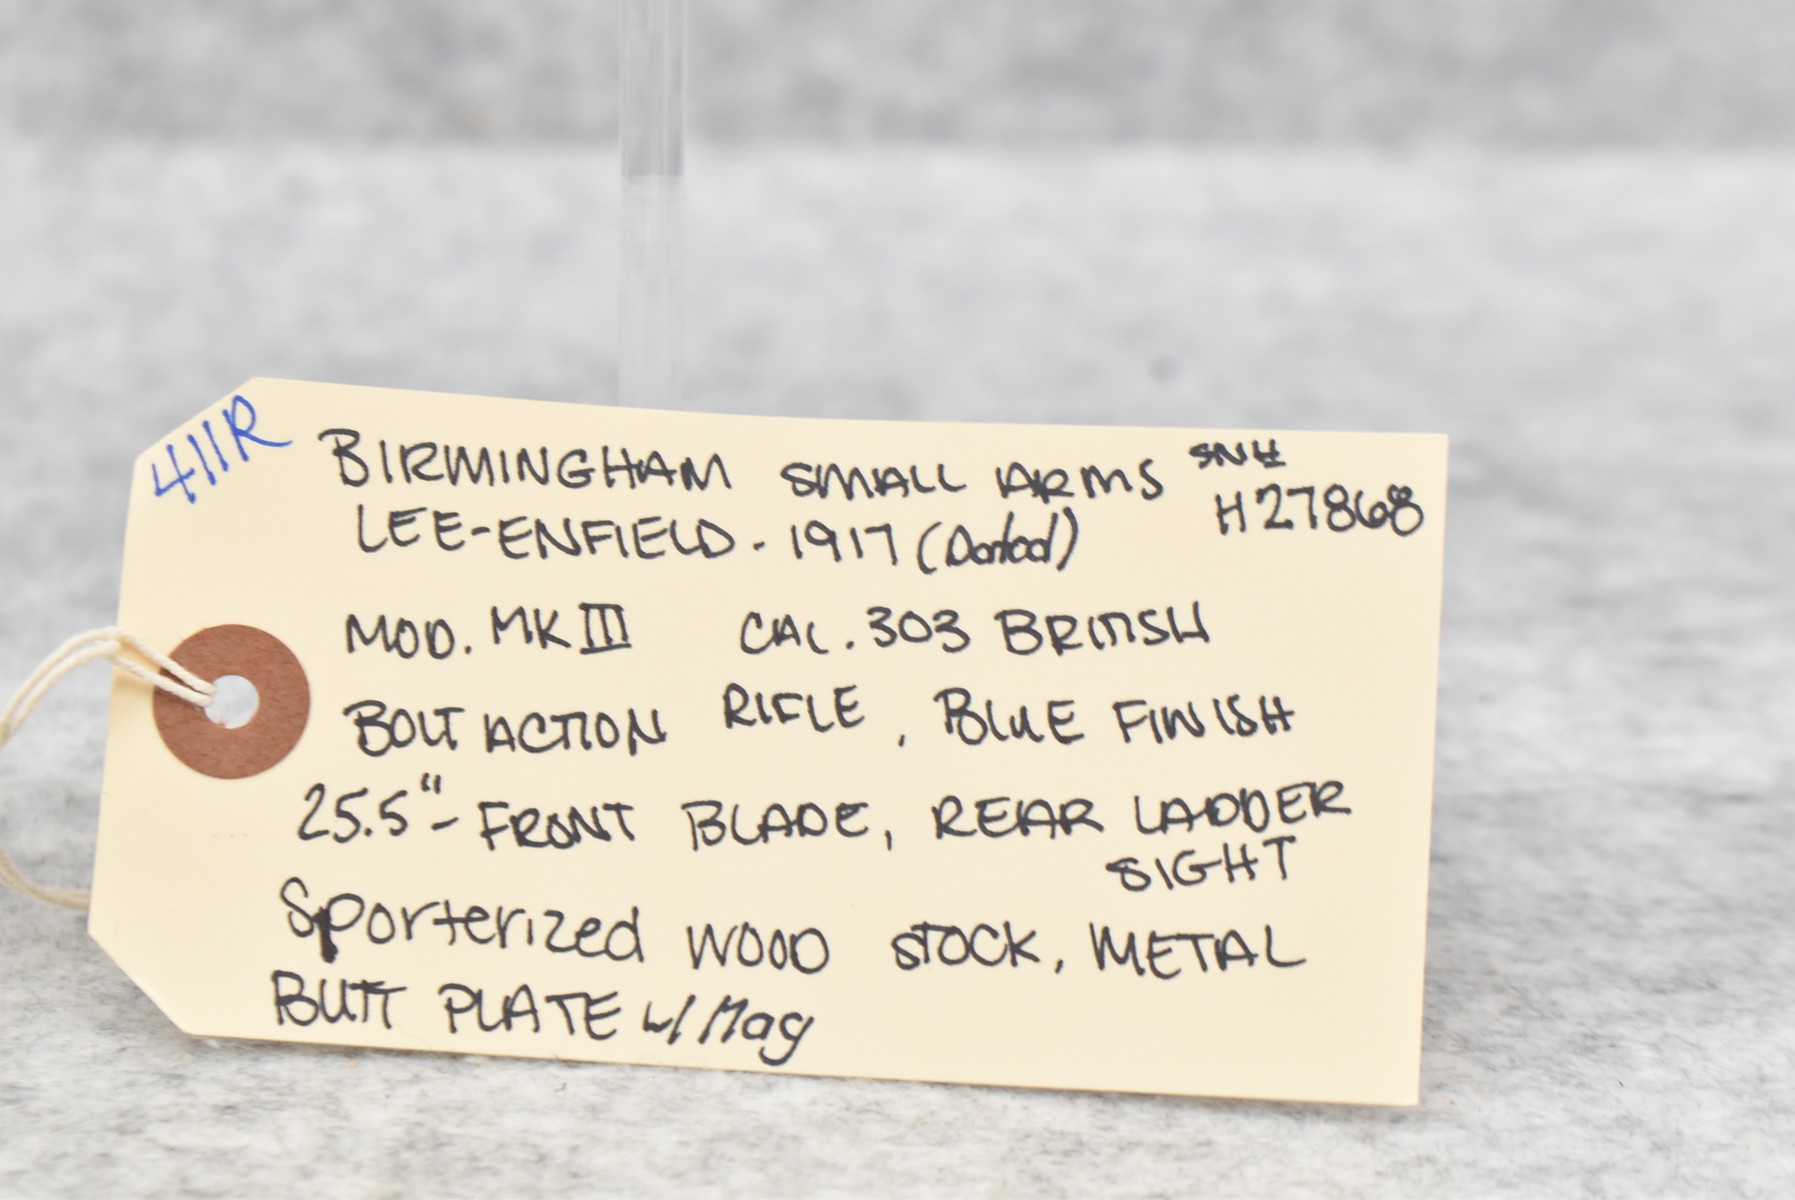 411R
BIRMINGHAM SMALL ARMS SN#
H27868
LEE-ENFIELD - 1917 (Dated)
MOD. MK III CAL .303 BRITISH
BOLT ACTION RIFLE, BLUE FINISH
25.5" - FRONT BLADE, REAR LADDER
SIGHT
Sporterized WOOD STOCK, METAL
BUTT PLATE w/ Mag